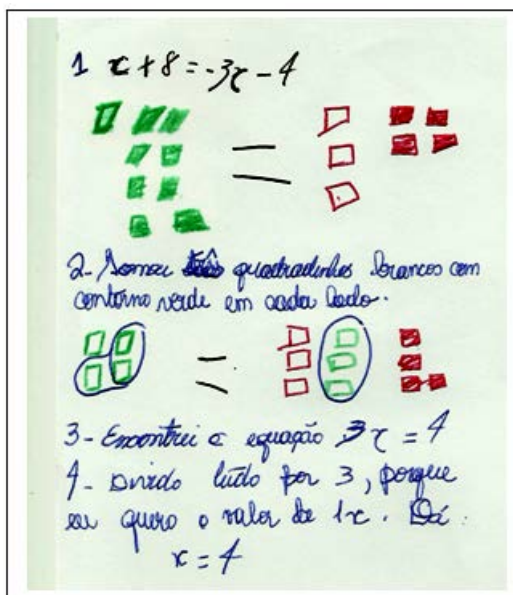 1 x + 8 = -3x - 4
=
2- Somei três quadradinhos brancos com
contorno verde em cada lado.
=
3- Encontrei a equação 3x = 4
4- Divido tudo por 3, porque
eu quero o valor de 1x. Dá:
x = 4